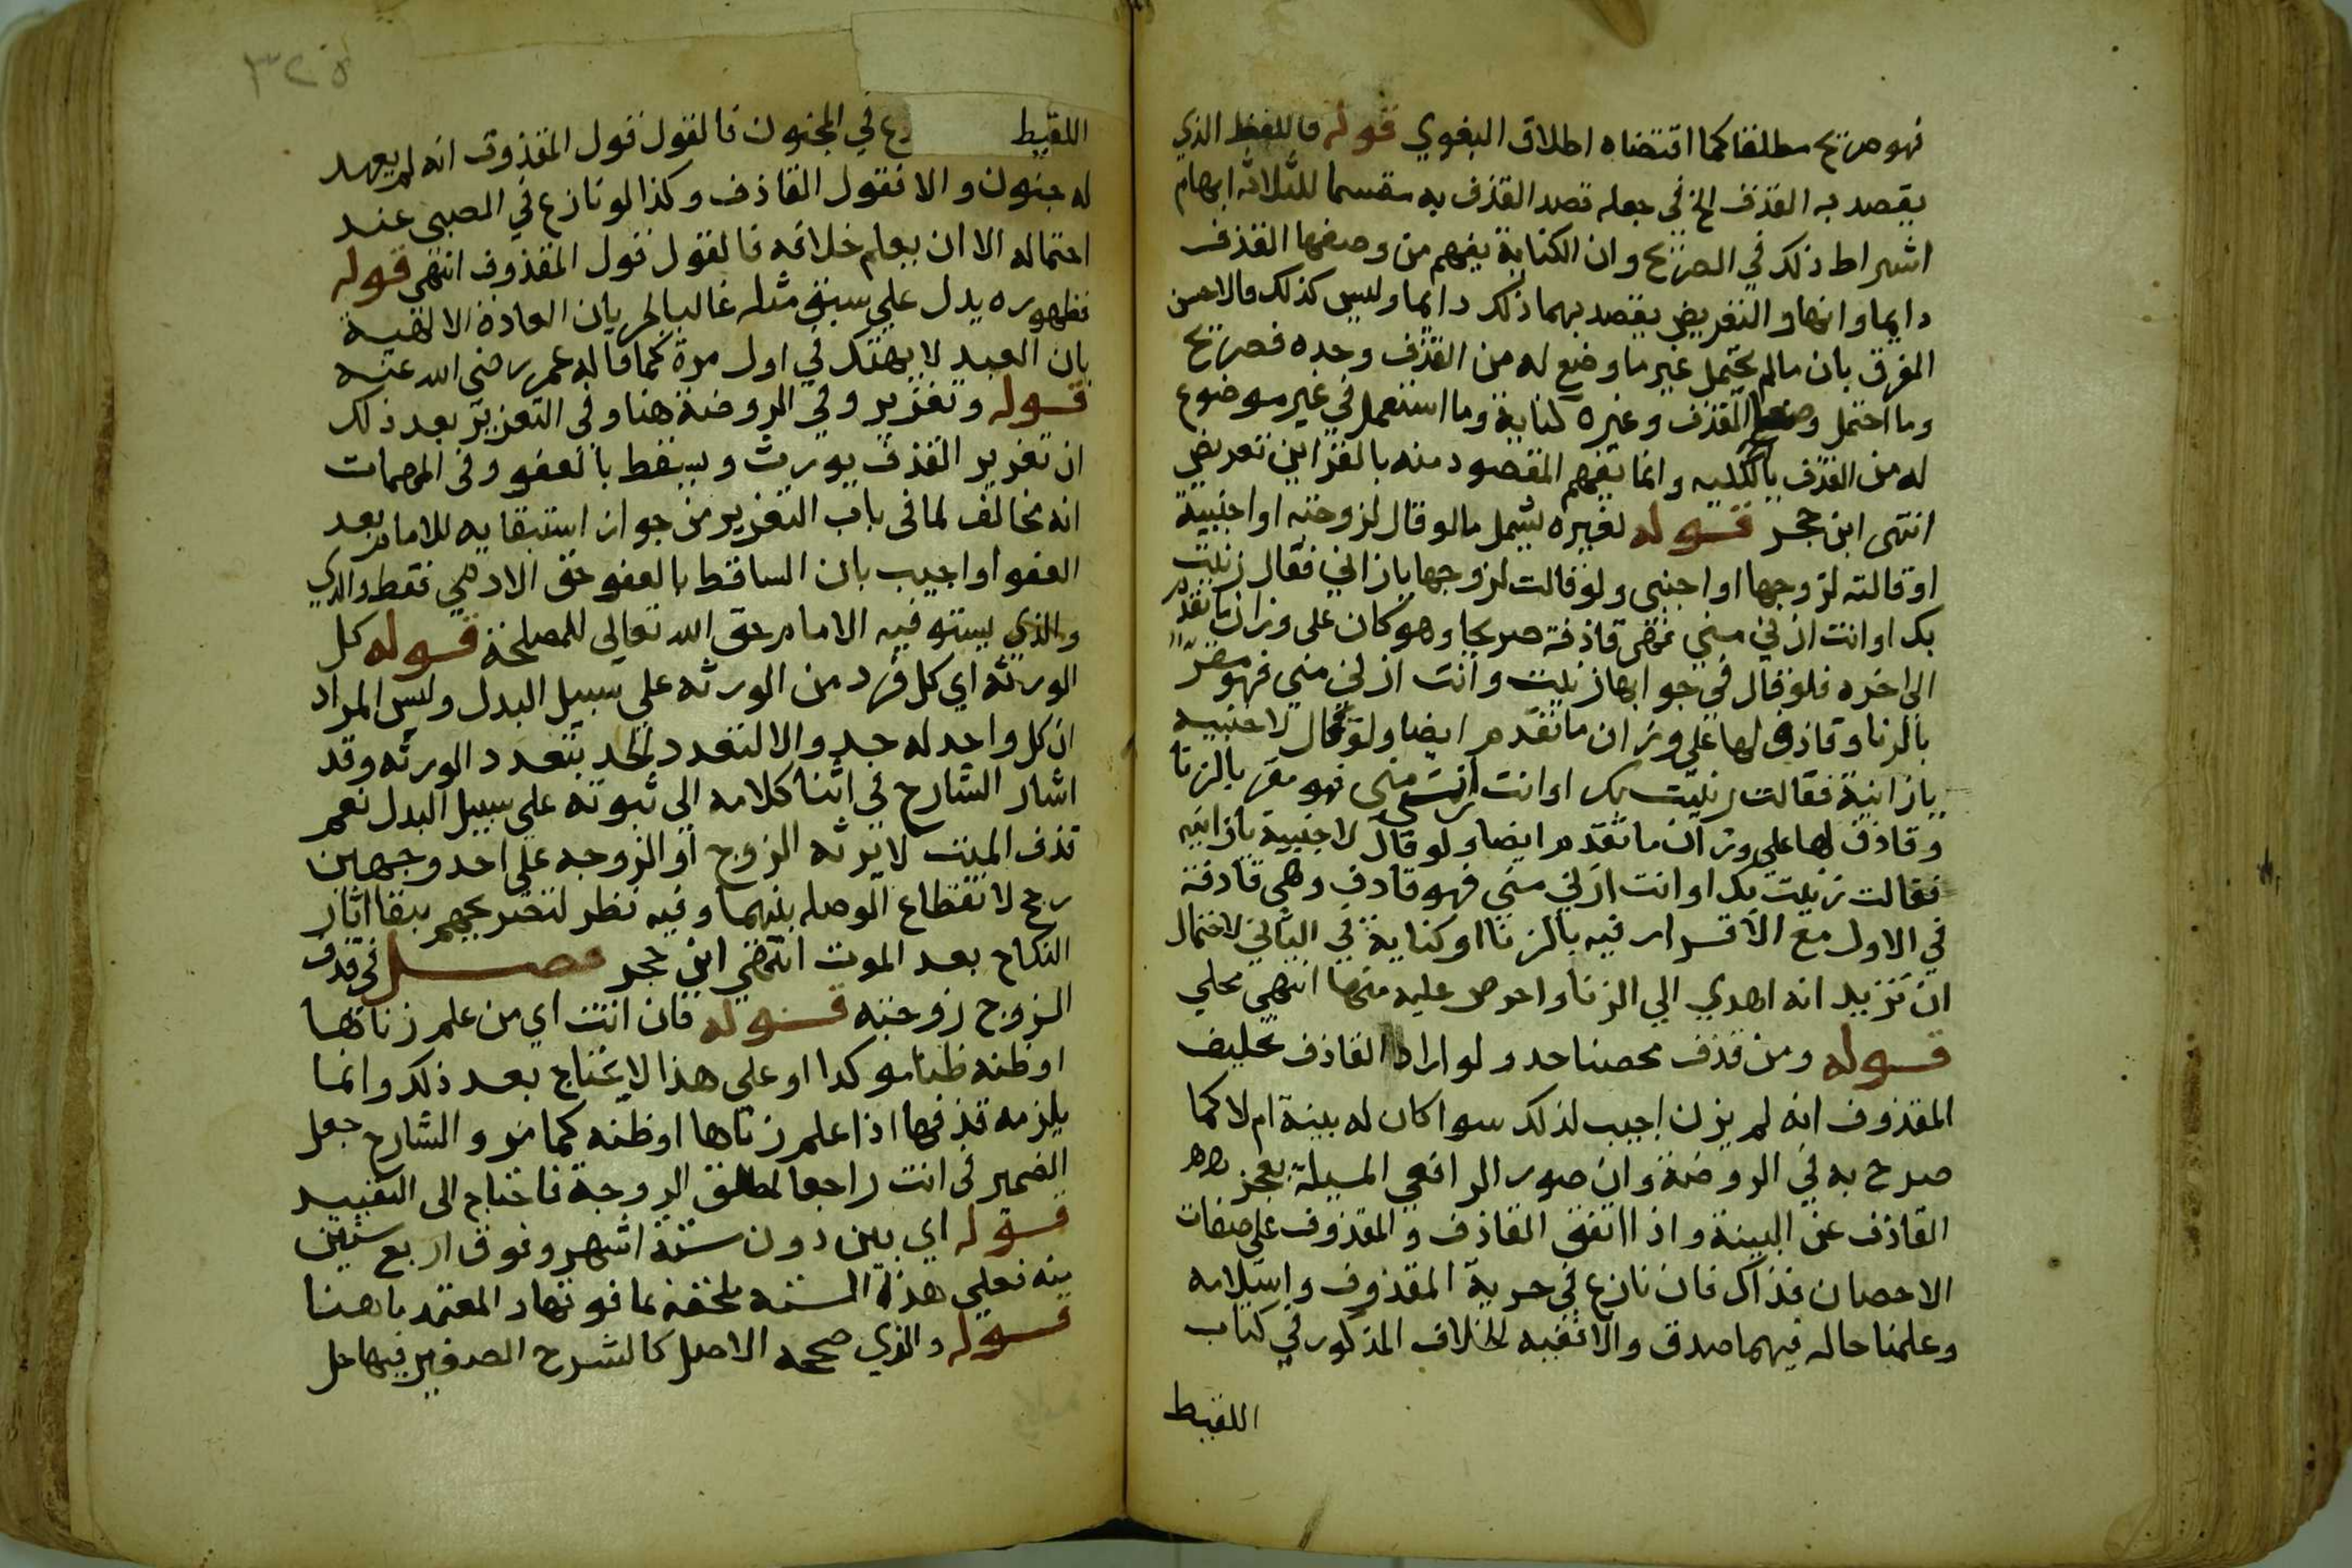 فهو صريح مطلقا كما اقتضاه اطلاق البغوي قوله فاللفظ الذي
يقصد به القذف الخ في جعله قصد القذف به مقسما للثلاثه ابهام
اشراط ذلك في الصريح وان الكناية يفهم من وصفها القذف
دايما وانها والتعريض يقصد بهما ذلك دايما وليس كذلك فالاحسن
الفرق بان مالم يحتمل غير ما وضع له من القذف وحده فصريح
وما احتمل القذف وغيره كناية وما استعمل في غير موضوع
له من القذف بالكليه وانما يفهم المقصود منه بالقراين تعريض
انتهى ابن حجر قوله لغيره يشمل مالو قال لزوجته او اجنبية
او قالته لزوجها او اجنبى ولو قالت لزوجها يازاني فقال زنيت
بك او انت ازني مني فهي قاذفة صريحا وهو كان على وزان ما تقدم
الى اخره فلو قال في جوابها زنيت وانت ازني مني فهو مقر
بالزنا وقاذف لها على وزان ما تقدم ايضا ولو قال لاجنبيه
يازانية فقالت زنيت بك او انت ازني مني فهو مقر بالزنا
وقاذف لها علي وزان ما تقدم ايضا ولو قال لاجنبية يازانيه
فقالت زنيت بك او انت ازني مني فهو قاذف وهي قاذفة
في الاول مع الاقرار فيه بالزنا او كناية في الثاني لاحتمال
ان تريد انه اهدي الي الزنا واحرص عليه منها انتهي محلي
قوله ومن قذف محصنا حد ولو اراد القاذف تحليف
المقذوف انه لم يزن اجيب لذلك سوا كان له بينة ام لا كما
صرح به في الروضة وان صور الرافعي المسيلة بعجز
القاذف عن البينة واذا اتفق القاذف والمقذوف على صفات
الاحصان فذاك فان نازع في حرية المقذوف واسلامه
وعلمنا حاله فيهما صدق والا ففيه الخلاف المذكور في كتاب
اللقيط
٣٢٥
اللقيط في المجنون فالقول قول المقذوف انه لم يعهد
له جنون والا فقول القاذف وكذا لو نازع في الصبى عند
احتماله الا ان يعلم خلافه فالقول قول المقذوف انتهى قوله
فظهوره يدل علي سبق مثله غالبا لجريان العادة الالهية
بان العبد لا يهتك في اول مرة كما قاله عمر رضي الله عنه
قوله وتعزير وفي الروضة هنا وفى التعزير بعد ذلك
ان تعزير القذف يورث ويسقط بالعفو وفى المهمات
انه مخالف لما فى باب التعزير من جواز استيفايه للامام بعد
العفو او اجيب بان الساقط بالعفو حق الادمي فقط والذي
والذي يستوفيه الامام حق الله تعالى للمصلحة قوله كل
الورثه اي كل فرد من الورثه علي سبيل البدل وليس المراد
ان كل واحد له حد والا لتعدد الحد بتعدد الورثه وقد
اشار الشارح في اثنا كلامه الي ثبوته علي سبيل البدل نعم
قذف الميت لا يرثه الزوج او الزوجه على احد وجهين
رجح لانقطاع الوصله بينهما وفيه نظر لتصريحهم ببقا اثار
النكاح بعد الموت انتهى ابن حجر فصل في قذف
الزوج زوجته قوله فان اتت اي من علم زناها
او ظنه ظنا موكدا او على هذا لا يحتاج بعد ذلك وانما
يلزمه قذفها اذا علم زناها او ظنه كما مر والشارح جعل
الضمير في اتت راجعا لمطلق الزوجة فاحتاج الى التقييد
قوله اي بين دون ستة اشهر وفوق اربع سنين
منه فعلي هذا الستة ملحقه بما فوتها والمعتمد ما هنا
قوله والذي صححه الاصل كالشرح الصغير فيها حل